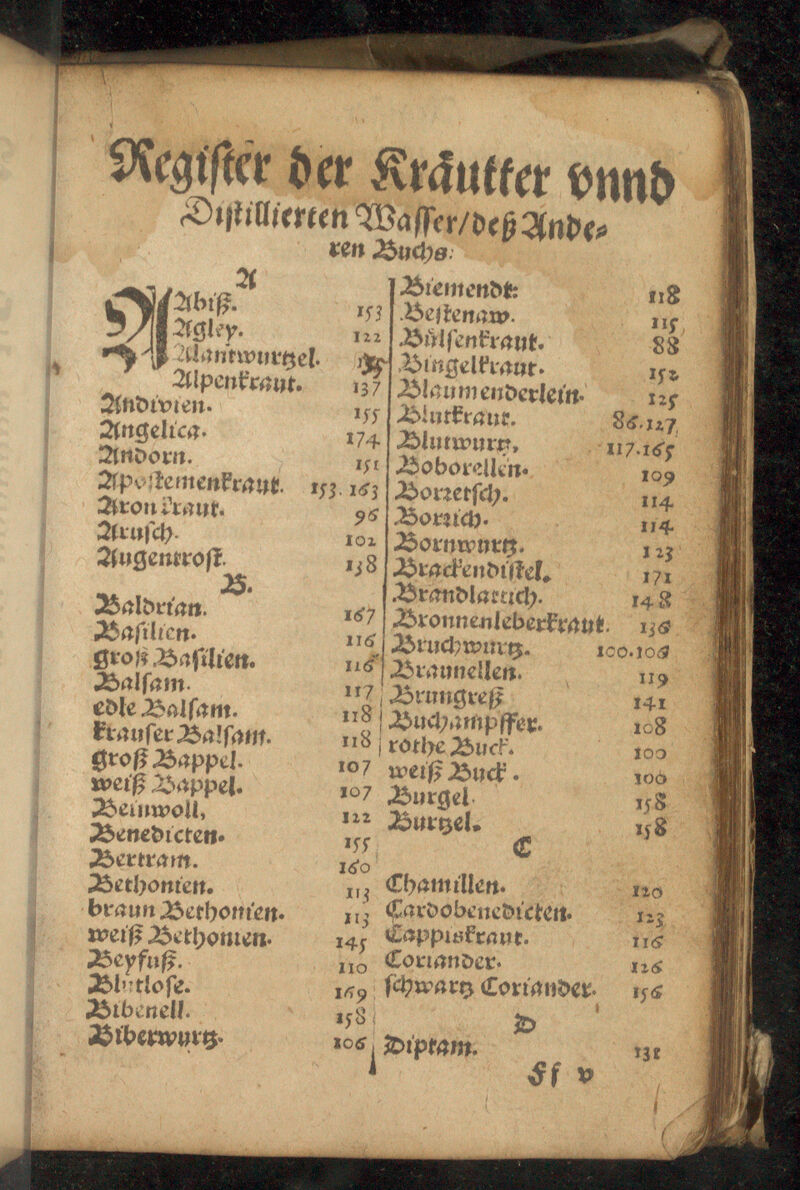 Register der Kräutter vnnd
Distillierten Wasser/deß Ande-
ren Buchs.
A
Abiß. 153
Agley. 122
Alantwurtzel.
Alpenkraut. 137
Andivien. 155
Angelica. 174
Andorn. 151
Apostemenkraut. 153. 163
Aron kraut. 96
Arusch. 102
Augentrost. 138
B.
Baldrian. 167
Basilien. 116
groß Basilien. 116
Balsam. 117
edle Balsam. 118
krauser Balsam. 118
groß Bappel. 107
weiß Bappel. 107
Beinwoll, 122
Benedicten. 155
Bertram. 160
Bethonien. 113
braun Bethonien. 113
weiß Bethonien. 145
Beyfuß. 110
Blutlose. 169
Bibenell. 158
Biberwurtz. 106
Biemendt: 118
Bestenaw. 115
Bülsenkraut. 88
Bingelkraut. 152
Blaumenderlein. 125
Blutkraut. 86.127
Blutwurtz, 117.165
Boborellen. 109
Borretsch. 114
Borrich. 114
Bornwurtz. 123
Brackendistel. 171
Brandlattich. 148
Bronnenleberkraut. 136
Bruchwurtz. 100.106
Braunellen. 119
Brungreß 141
Buchampffer. 108
rothe Buck. 100
weiß Buck. 100
Burgel. 158
Burtzel. 158
C
Chamillen. 120
Cardobenedicten. 123
Cappiskraut. 116
Coriander. 126
schwartz Coriander. 156
D
Diptam. 131
Ff v